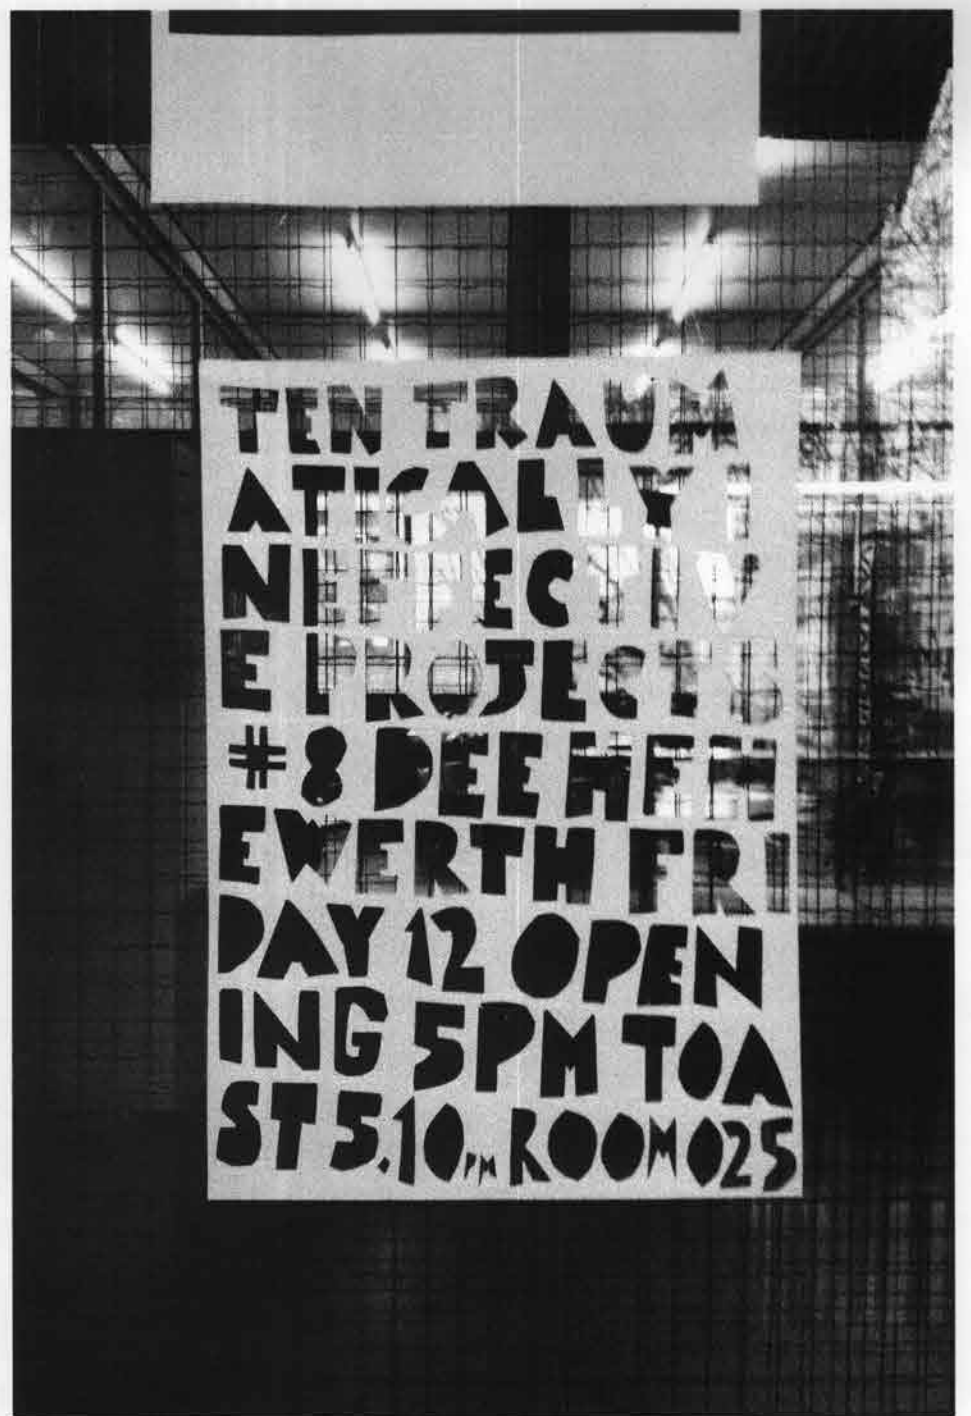 TEN TRAUM
ATICALLY I
NEFFECTIV
E PROJECTS
#8 DEE HEN
EWERTH FRI
DAY 12 OPEN
ING 5PM TOA
ST 5.10PM ROOM 025